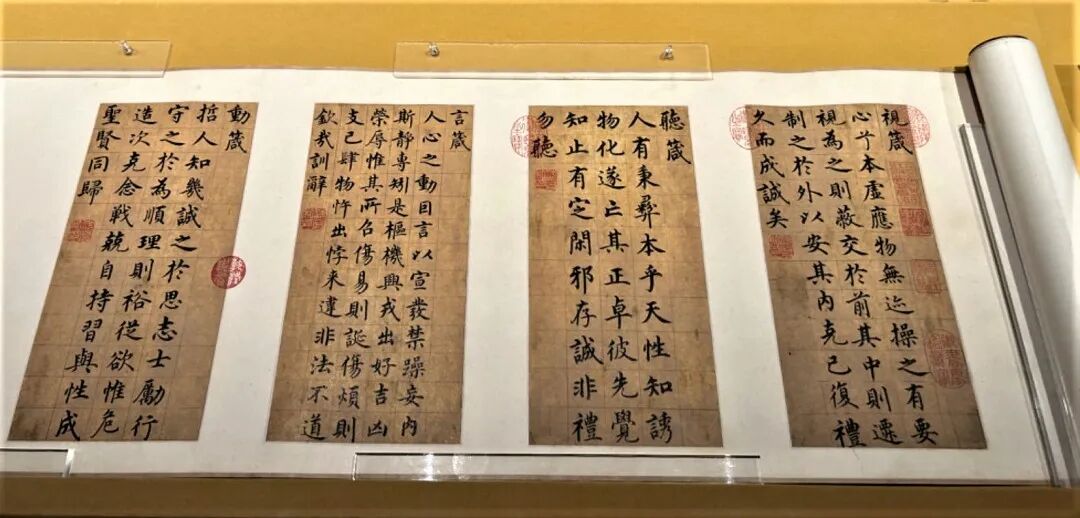 視箴
心兮本虛應物無迹操之有要
視為之則蔽交於前其中則遷
制之於外以安其內克己復禮
久而成誠矣
聽箴
人有秉彝本乎天性知誘
物化遂亡其正卓彼先覺
知止有定閑邪存誠非禮
勿聽
言箴
人心之動因言以宣發禁躁妄內
斯靜專矧是樞機興戎出好吉凶
榮辱惟其所召傷易則誕傷煩則
支己肆物忤出悖来違非法不道
欽哉訓辭
動箴
哲人知幾誠之於思志士勵行
守之於為順理則裕從欲惟危
造次克念戰兢自持習與性成
聖賢同歸